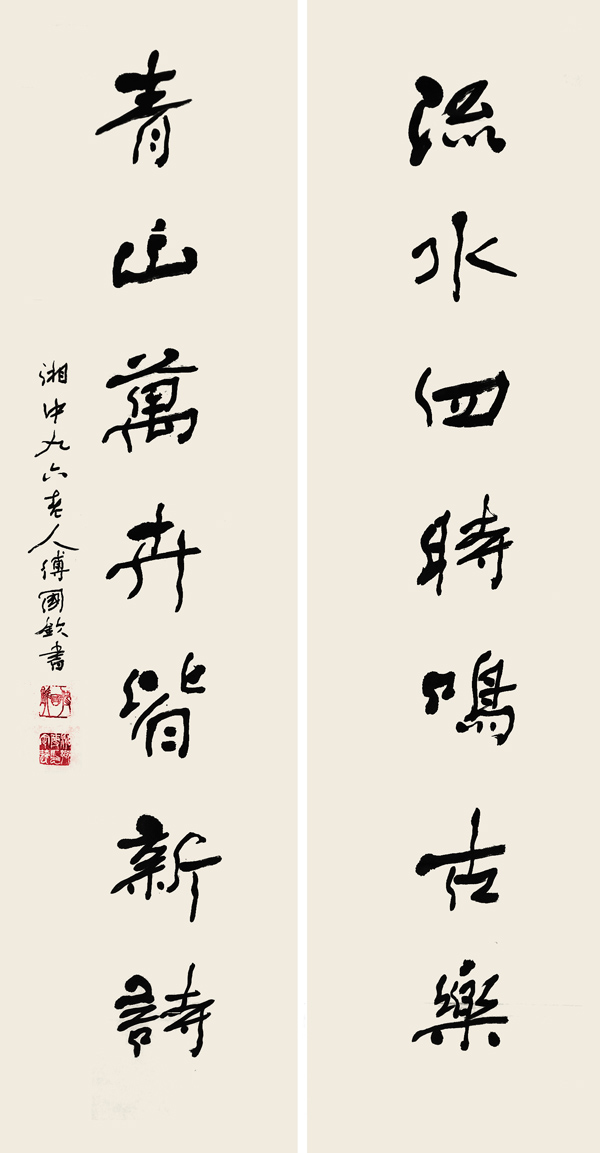 流水四時鳴古樂
青山萬卉皆新詩
湘中九六老人傅國欽書